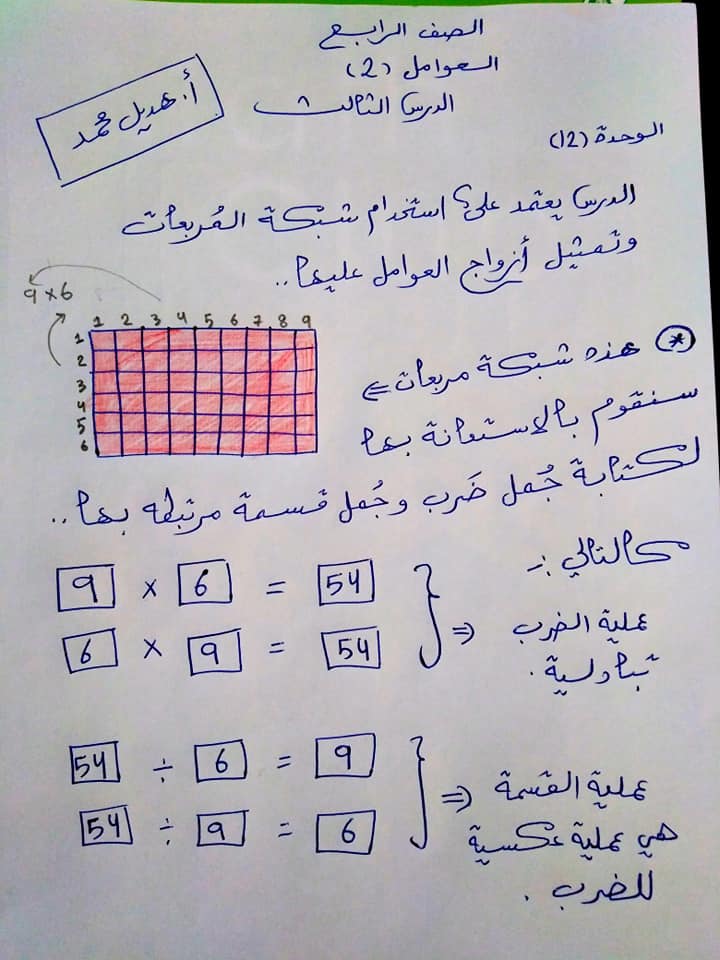 الصف الرابع
العوامل (2)
الدرس الثالث
أ. هديل محمد
الوحدة (12)
الدرس يعتمد على؟ استخدام شبكة المُربعات
وتمثيل أزواج العوامل عليها..
9 x 6
1 2 3 4 5 6 7 8 9
1
2
3
4
5
6
* هذه شبكة مربعات ⇐
سنقوم بالاستعانة بها
لكتابة جُمل ضَرب وجُمل قسمة مرتبطه بها..
كالتالي :-
9 x 6 = 54
6 x 9 = 54
⇒ عملية الضرب
تبادلية.
54 ÷ 6 = 9
54 ÷ 9 = 6
⇒ عملية القسمة
هي عملية عكسية
للضرب.